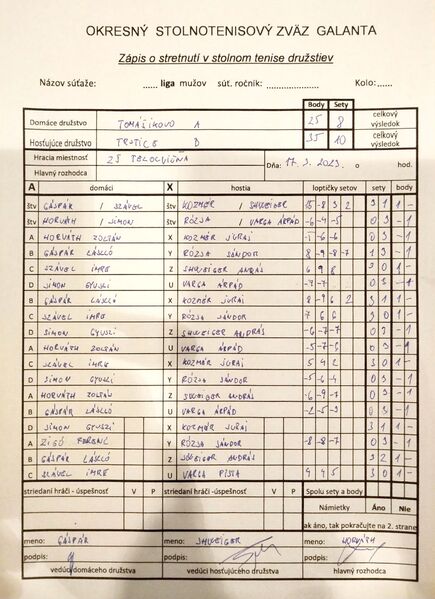 OKRESNÝ STOLNOTENISOVÝ ZVÄZ GALANTA
Zápis o stretnutí v stolnom tenise družstiev
Názov súťaže: ...... liga mužov súť. ročník:.................... Kolo:......
Body Sety
Domáce družstvo TOMÁŠIKOVO A 25 8 celkový výsledok
Hosťujúce družstvo B 35 10 celkový výsledok
Hracia miestnosť ZŠ TELOCVIČŇA Dňa: 17. 3. 2023 o hod.
Hlavný rozhodca
A domáci X hostia loptičky setov sety body
štv GÁSPÁR / SZÁVEL štv KOZMÉR / SHWEIGER 3 1 1 -
štv HORVÁTH / SIMON štv RÓZSA / VARGA ÁRPÁD -6 -4 -5 0 3 - 1
A HORVÁTH ZOLTÁN X KOZMÉR JURAJ 0 3 - 1
B GÁSPÁR LÁSZLÓ Y RÓZSA SÁNDOR 8 -9 -8 -7 1 3 - 1
C SZÁVEL IMRE Z SHWEIGER ANDRÁS 6 9 8 3 0 1 -
D SIMON GYUSZI U VARGA ÁRPÁD 0 3 - 1
B GÁSPÁR LÁSZLÓ X KOZMÉR JURAJ 8 -9 6 2 3 1 1 -
C SZÁVEL IMRE Y RÓZSA SÁNDOR 7 6 6 3 0 1 -
D SIMON GYUSZI Z SHWEIGER ANDRÁS -6 -7 -7 0 3 - 1
A HORVÁTH ZOLTÁN U VARGA ÁRPÁD -5 -7 -6 0 3 - 1
C SZÁVEL IMRE X KOZMÉR JURAJ 5 4 2 3 0 1 -
D SIMON GYUSZI Y RÓZSA SÁNDOR -5 -6 -4 0 3 - 1
A HORVÁTH ZOLTÁN Z SHWEIGER ANDRÁS 0 3 - 1
B GÁSPÁR LÁSZLÓ U VARGA ÁRPÁD 0 3 - 1
D SIMON GYUSZI X KOZMÉR JURAJ 3 1 1 -
A FERENC Y RÓZSA SÁNDOR -8 -8 -7 0 3 - 1
B GÁSPÁR LÁSZLÓ Z ANDRÁS 3 2 1 -
C SZÁVEL IMRE U VARGA PISTA 4 4 5 3 0 1 -
striedaní hráči - úspešnosť V P striedaní hráči - úspešnosť V P Spolu sety a body
Námietky Áno Nie
ak áno, tak pokračujte na 2. strane
meno: GÁSPÁR meno: SHWEIGER meno: HORVÁTH
podpis: podpis: podpis:
vedúci domáceho družstva vedúci hosťujúceho družstva hlavný rozhodca